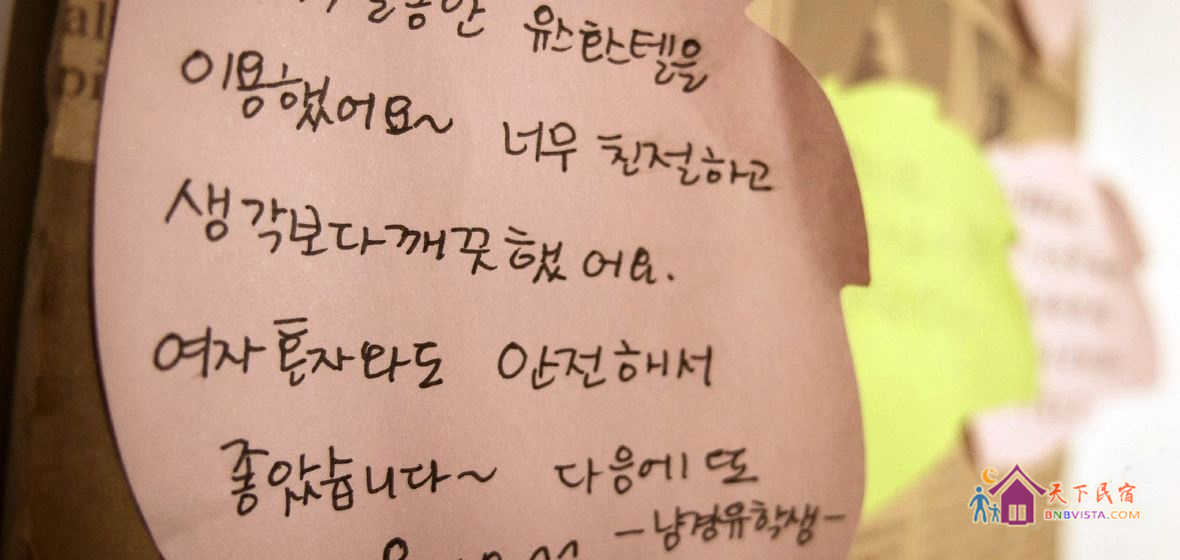 유스한텔을
이용했어요~ 너무 친절하고
생각보다깨끗했어요.
여자혼자와도 안전해서
좋았습니다~ 다음에 또
-남경유학생-
al
pi
天下民宿
BNBVISTA.COM